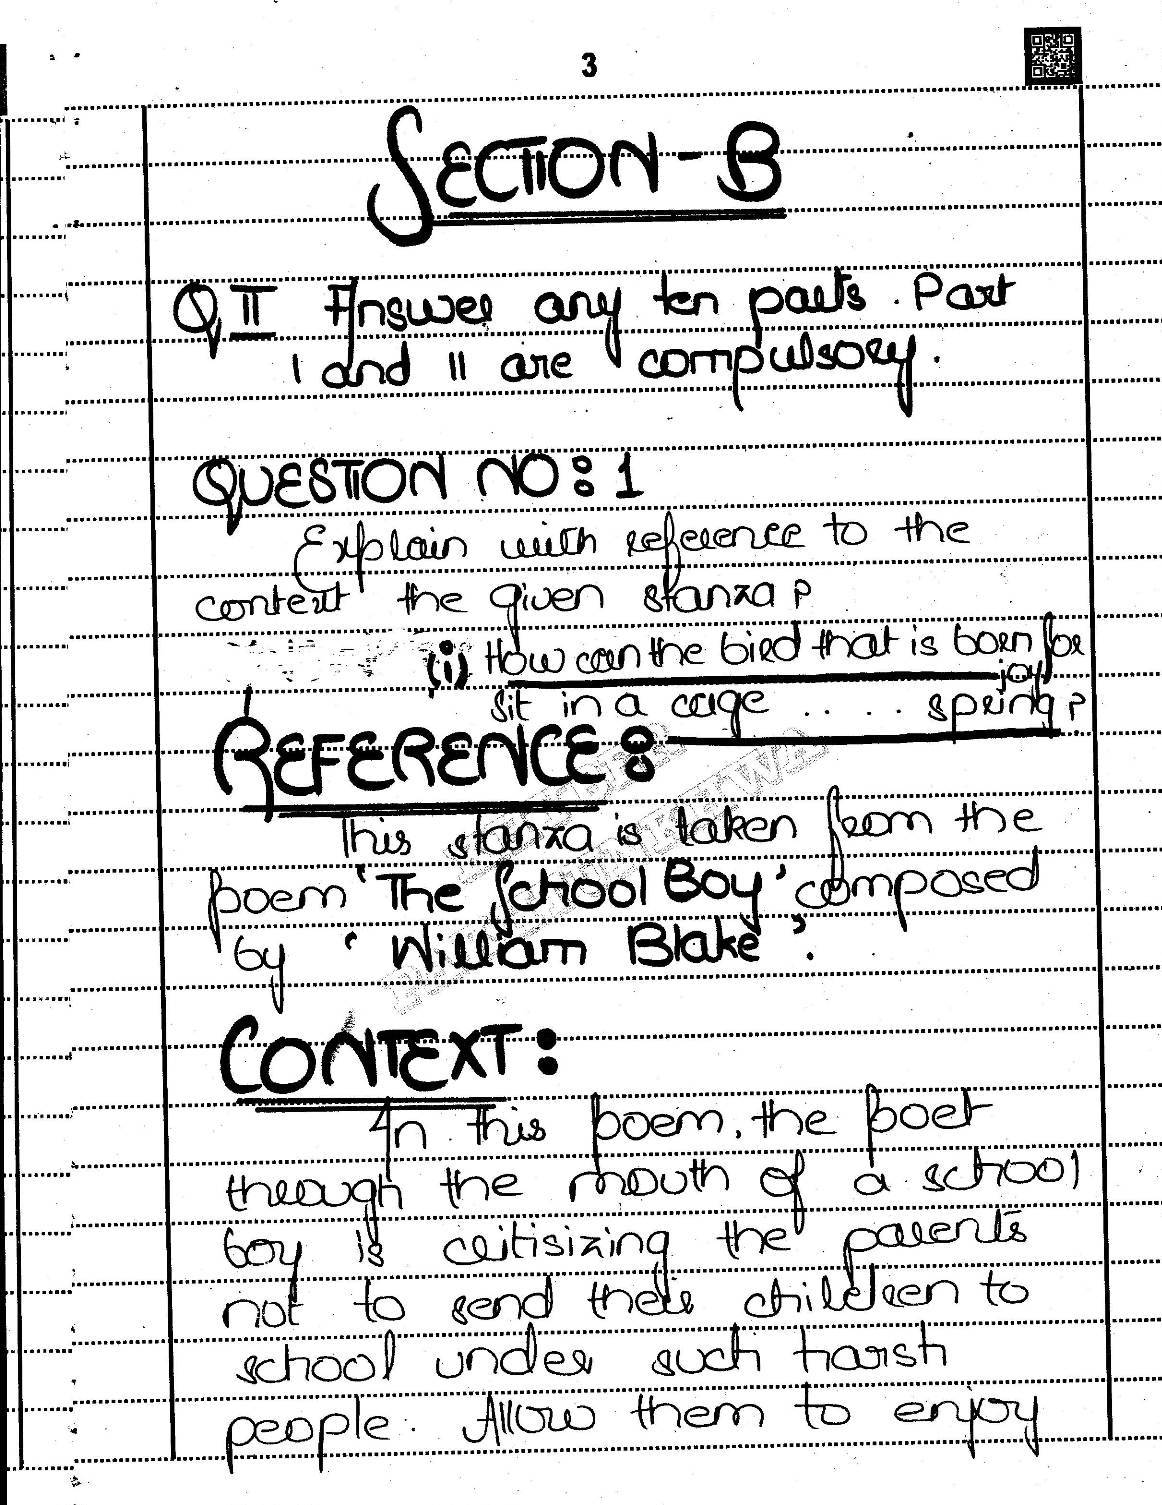 3
SECTION-B
Q II Answer any ten parts. Part
I and II are compulsory.
QUESTION NO: 1
Explain with reference to the
context the given stanza?
(i) How can the bird that is born for
joy
Sit in a cage ..... spring?
REFERENCE:
This stanza is taken from the
poem 'The School Boy' composed
by 'William Blake'.
CONTEXT:
In this poem, the poet
through the mouth of a school
boy is critisizing the parents
not to send their children to
school under such harsh
people. Allow them to enjoy